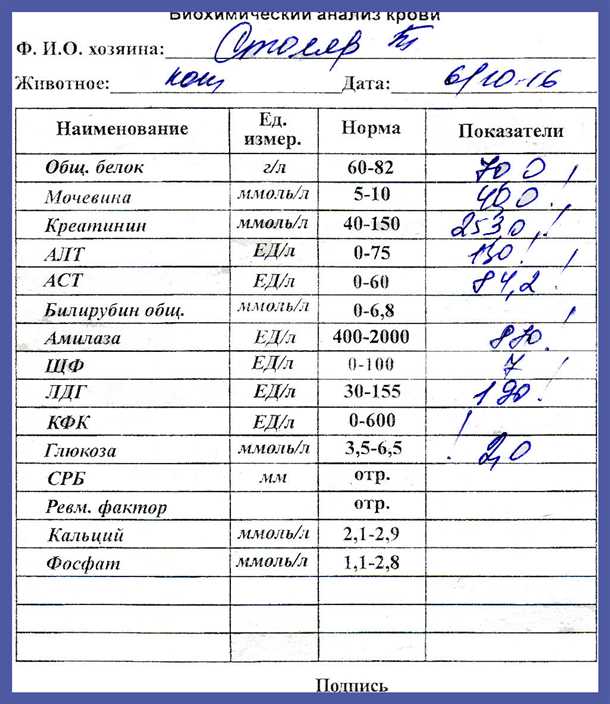 Биохимический анализ крови
Ф. И.О. хозяина: Столяр
Животное: кош Дата: 6/10-16
Наименование Ед. измер. Норма Показатели
Общ. белок г/л 60-82 70 0 !
Мочевина ммоль/л 5-10 40,0 !
Креатинин ммоль/л 40-150 253,0 !
АЛТ ЕД/л 0-75 130 !
АСТ ЕД/л 0-60 84,2 !
Билирубин общ. ммоль/л 0-6,8
Амилаза ЕД/л 400-2000 870 !
ЩФ ЕД/л 0-100 7
ЛДГ ЕД/л 30-155 190 !
КФК ЕД/л 0-600
Глюкоза ммоль/л 3,5-6,5 ! 2,0
СРБ мм отр.
Ревм. фактор отр.
Кальций ммоль/л 2,1-2,9
Фосфат ммоль/л 1,1-2,8
Подпись